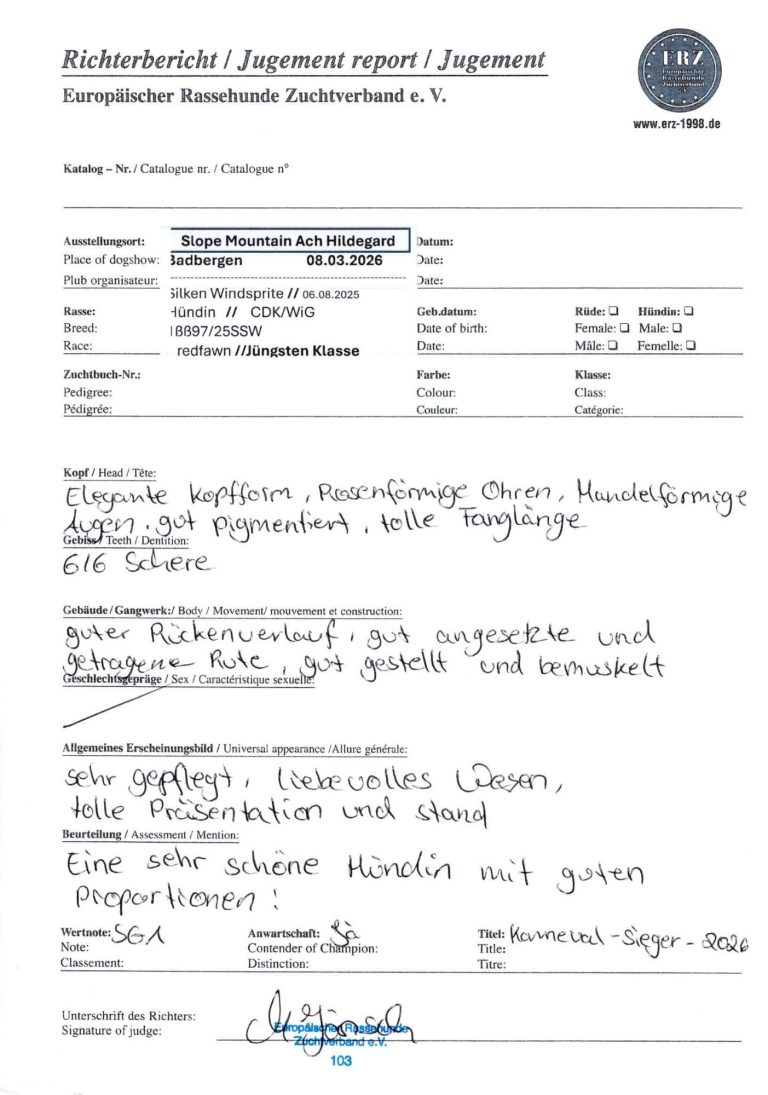 Richterbericht / Jugement report / Jugement
Europäischer Rassehunde Zuchtverband e. V.
ERZ
Europäischer
Rassehunde
Zuchtverband
www.erz-1998.de
Katalog – Nr. / Catalogue nr. / Catalogue n°
Ausstellungsort: Slope Mountain Ach Hildegard Datum:
Place of dogshow: Badbergen 08.03.2026 Date:
Plub organisateur: Date:
Silken Windsprite // 06.08.2025
Rasse: Hündin // CDK/WiG Geb.datum: Rüde: ❑ Hündin: ❑
Breed: 1ßß97/25SSW Date of birth: Female: ❑ Male: ❑
Race: redfawn //Jüngsten Klasse Date: Mâle: ❑ Femelle: ❑
Zuchtbuch-Nr.: Farbe: Klasse:
Pedigree: Colour: Class:
Pédigrée: Couleur: Catégorie:
Kopf / Head / Tête:
Elegante Kopfform, Rosenförmige Ohren, Mandelförmige
Augen, gut pigmentiert, tolle Fanglänge
Gebiss / Teeth / Dentition:
6/6 Schere
Gebäude / Gangwerk:/ Body / Movement/ mouvement et construction:
guter Rückenverlauf, gut angesetzte und
getragene Rute, gut gestellt und bemuskelt
Geschlechtsgepräge / Sex / Caractéristique sexuelle:
Allgemeines Erscheinungsbild / Universal appearance /Allure générale:
sehr gepflegt, liebevolles Wesen,
tolle Präsentation und stand
Beurteilung / Assessment / Mention:
Eine sehr schöne Hündin mit guten
Proportionen!
Wertnote: SG1 Anwartschaft: Ja Titel: Karneval-Sieger-2026
Note: Contender of Champion: Title:
Classement: Distinction: Titre:
Unterschrift des Richters:
Signature of judge:
Europäischer Rassehunde
Zuchtverband e.V.
103